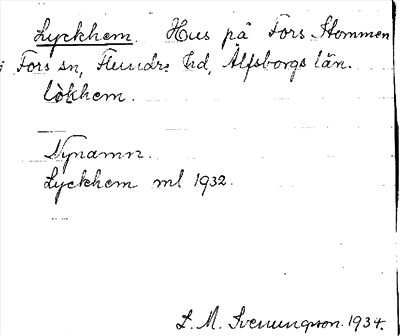 Lyckhem. Hus på Fors Stommen
i Fors sn, Flundre hd, Älfsborgs län.
lòkhem.
Nynamn.
Lyckhem ml 1932.
L. M. Svenungsson. 1934.